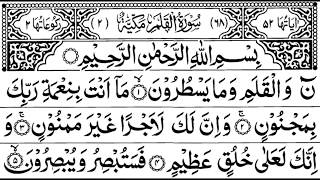 اٰيَاتُهَا ٥٢ (٦٨) سُوْرَةُ الْقَلَمِ مَكِّيَّةٌ (٢) رُكُوْعَاتُهَا ٢
بِسْمِ اللّٰهِ الرَّحْمٰنِ الرَّحِيْمِ
نٓ وَالْقَلَمِ وَمَا يَسْطُرُوْنَ ۝١ مَاۤ اَنْتَ بِنِعْمَةِ رَبِّكَ
بِمَجْنُوْنٍ ۝٢ وَاِنَّ لَكَ لَاَجْرًا غَيْرَ مَمْنُوْنٍ ۝٣ وَ
اِنَّكَ لَعَلٰى خُلُقٍ عَظِيْمٍ ۝٤ فَسَتُبْصِرُ وَيُبْصِرُوْنَ ۝٥